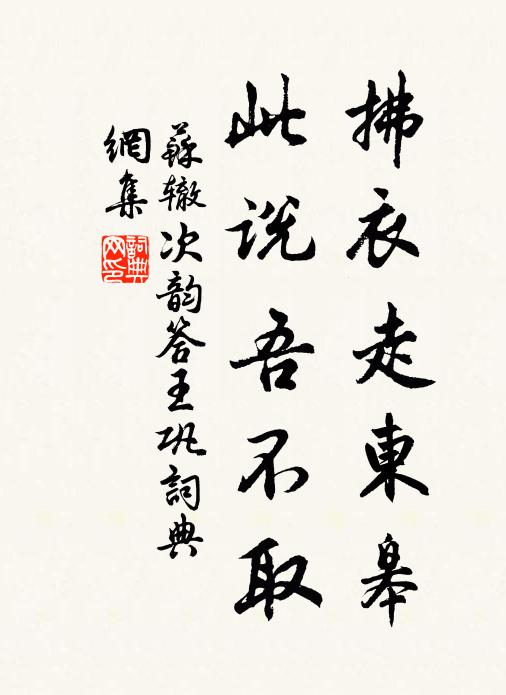 拂衣走東皋
此説吾不取
蘇辙次韵答王巩詞典
網集
詞典
网印